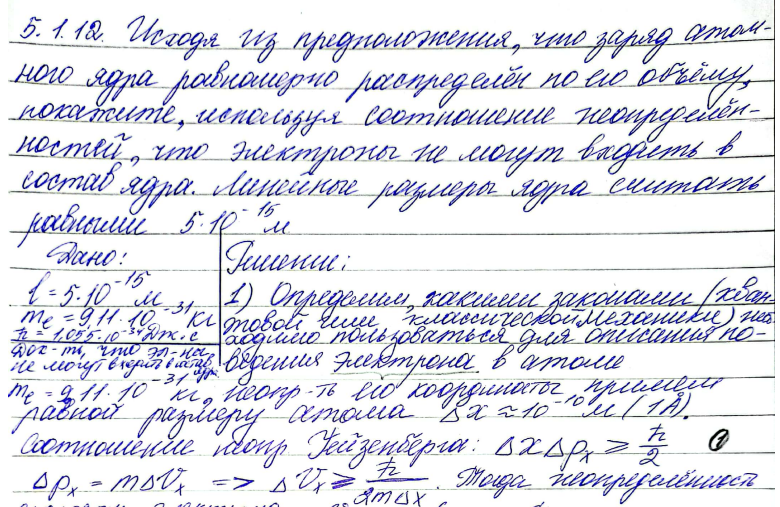 5.1.12. Исходя из предположения, что заряд атом-
ного ядра равномерно распределён по его объёму,
покажите, используя соотношение неопределён-
ностей, что электроны не могут входить в
состав ядра. Линейные размеры ядра считать
равными 5·10⁻¹⁵ м
Дано:
l = 5·10⁻¹⁵ м
mₑ = 9,11·10⁻³¹ кг
ħ = 1,055·10⁻³⁴ Дж·с
Док-ть, что эл-ны
не могут входить в состав ядра
Решение:
1) Определим, какими законами (кван-
товой или классической механики) необ-
ходимо пользоваться для описания по-
ведения электрона в атоме
mₑ = 9,11·10⁻³¹ кг, неопр-ть его координаты примем
равной размеру атома Δx ≈ 10⁻¹⁰ м (1Å).
Соотношение неопр Гейзенберга: ΔxΔpₓ ≥ ħ/2 ①
Δpₓ = mΔVₓ => ΔVₓ ≥ ħ/2mΔx. Тогда неопределённость